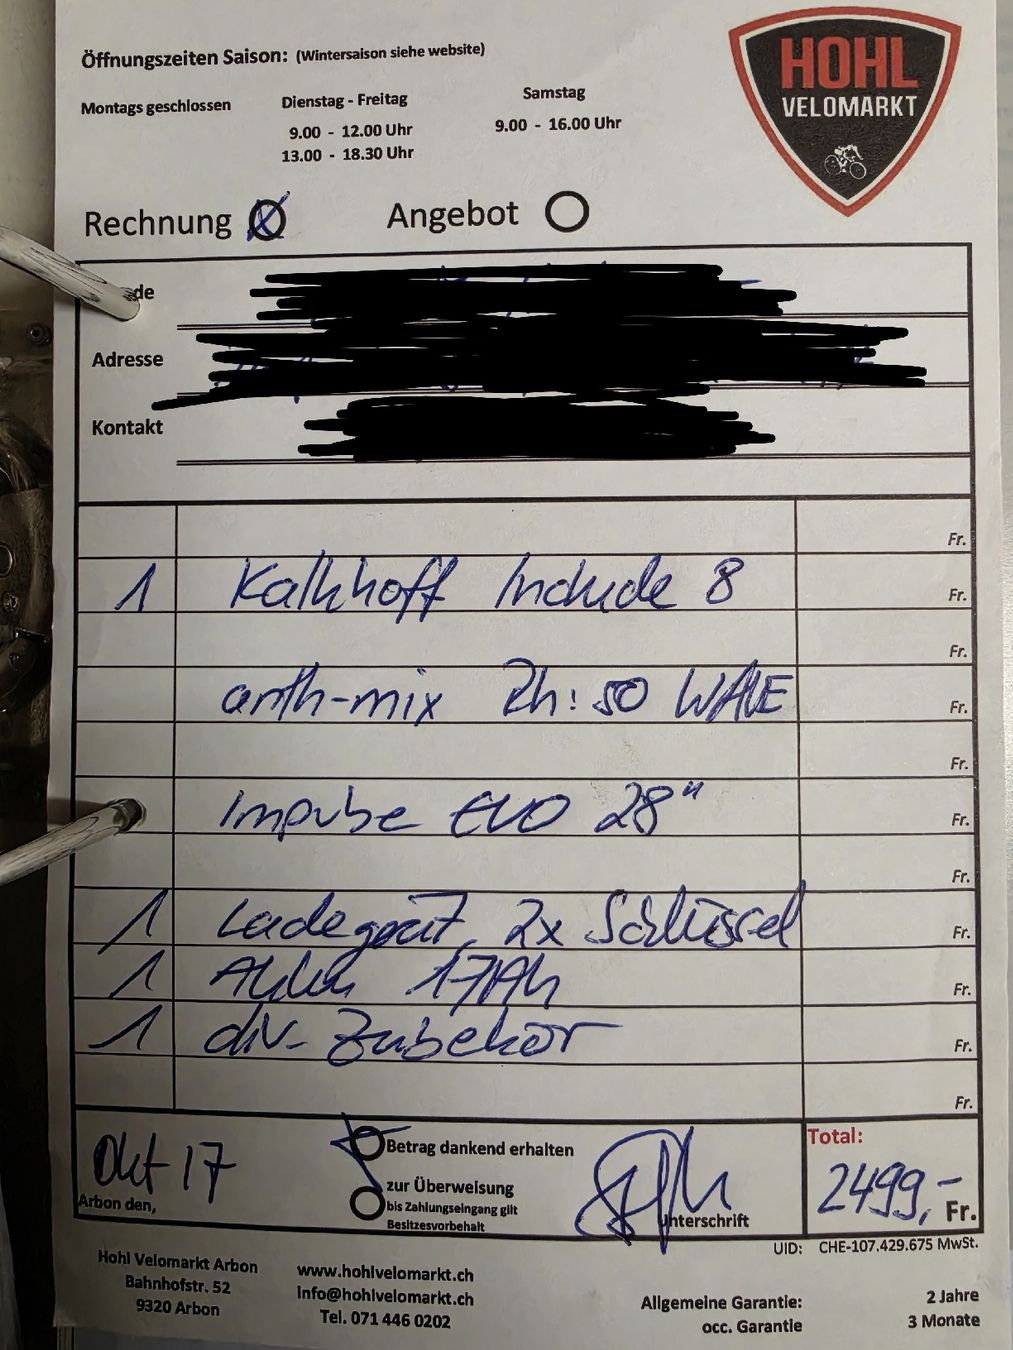 Öffnungszeiten Saison: (Wintersaison siehe website)
Montags geschlossen
Dienstag - Freitag
9.00 - 12.00 Uhr
13.00 - 18.30 Uhr
Samstag
9.00 - 16.00 Uhr
HOHL
VELOMARKT
Rechnung X Angebot
de
Adresse
Kontakt
Fr.
1 Kalkhoff Include 8 Fr.
Fr.
anth-mix Rh: 50 WAVE Fr.
Fr.
Impulse EVO 28" Fr.
Fr.
1 Ladegerät, 2x Schlüssel Fr.
1 Akku 17Ah Fr.
1 div. Zubehör Fr.
Fr.
Okt 17
Arbon den,
Betrag dankend erhalten
zur Überweisung
bis Zahlungseingang gilt
Besitzesvorbehalt
Unterschrift
Total:
2499,- Fr.
UID: CHE-107.429.675 MwSt.
Hohl Velomarkt Arbon
Bahnhofstr. 52
9320 Arbon
www.hohlvelomarkt.ch
info@hohlvelomarkt.ch
Tel. 071 446 0202
Allgemeine Garantie: 2 Jahre
occ. Garantie 3 Monate